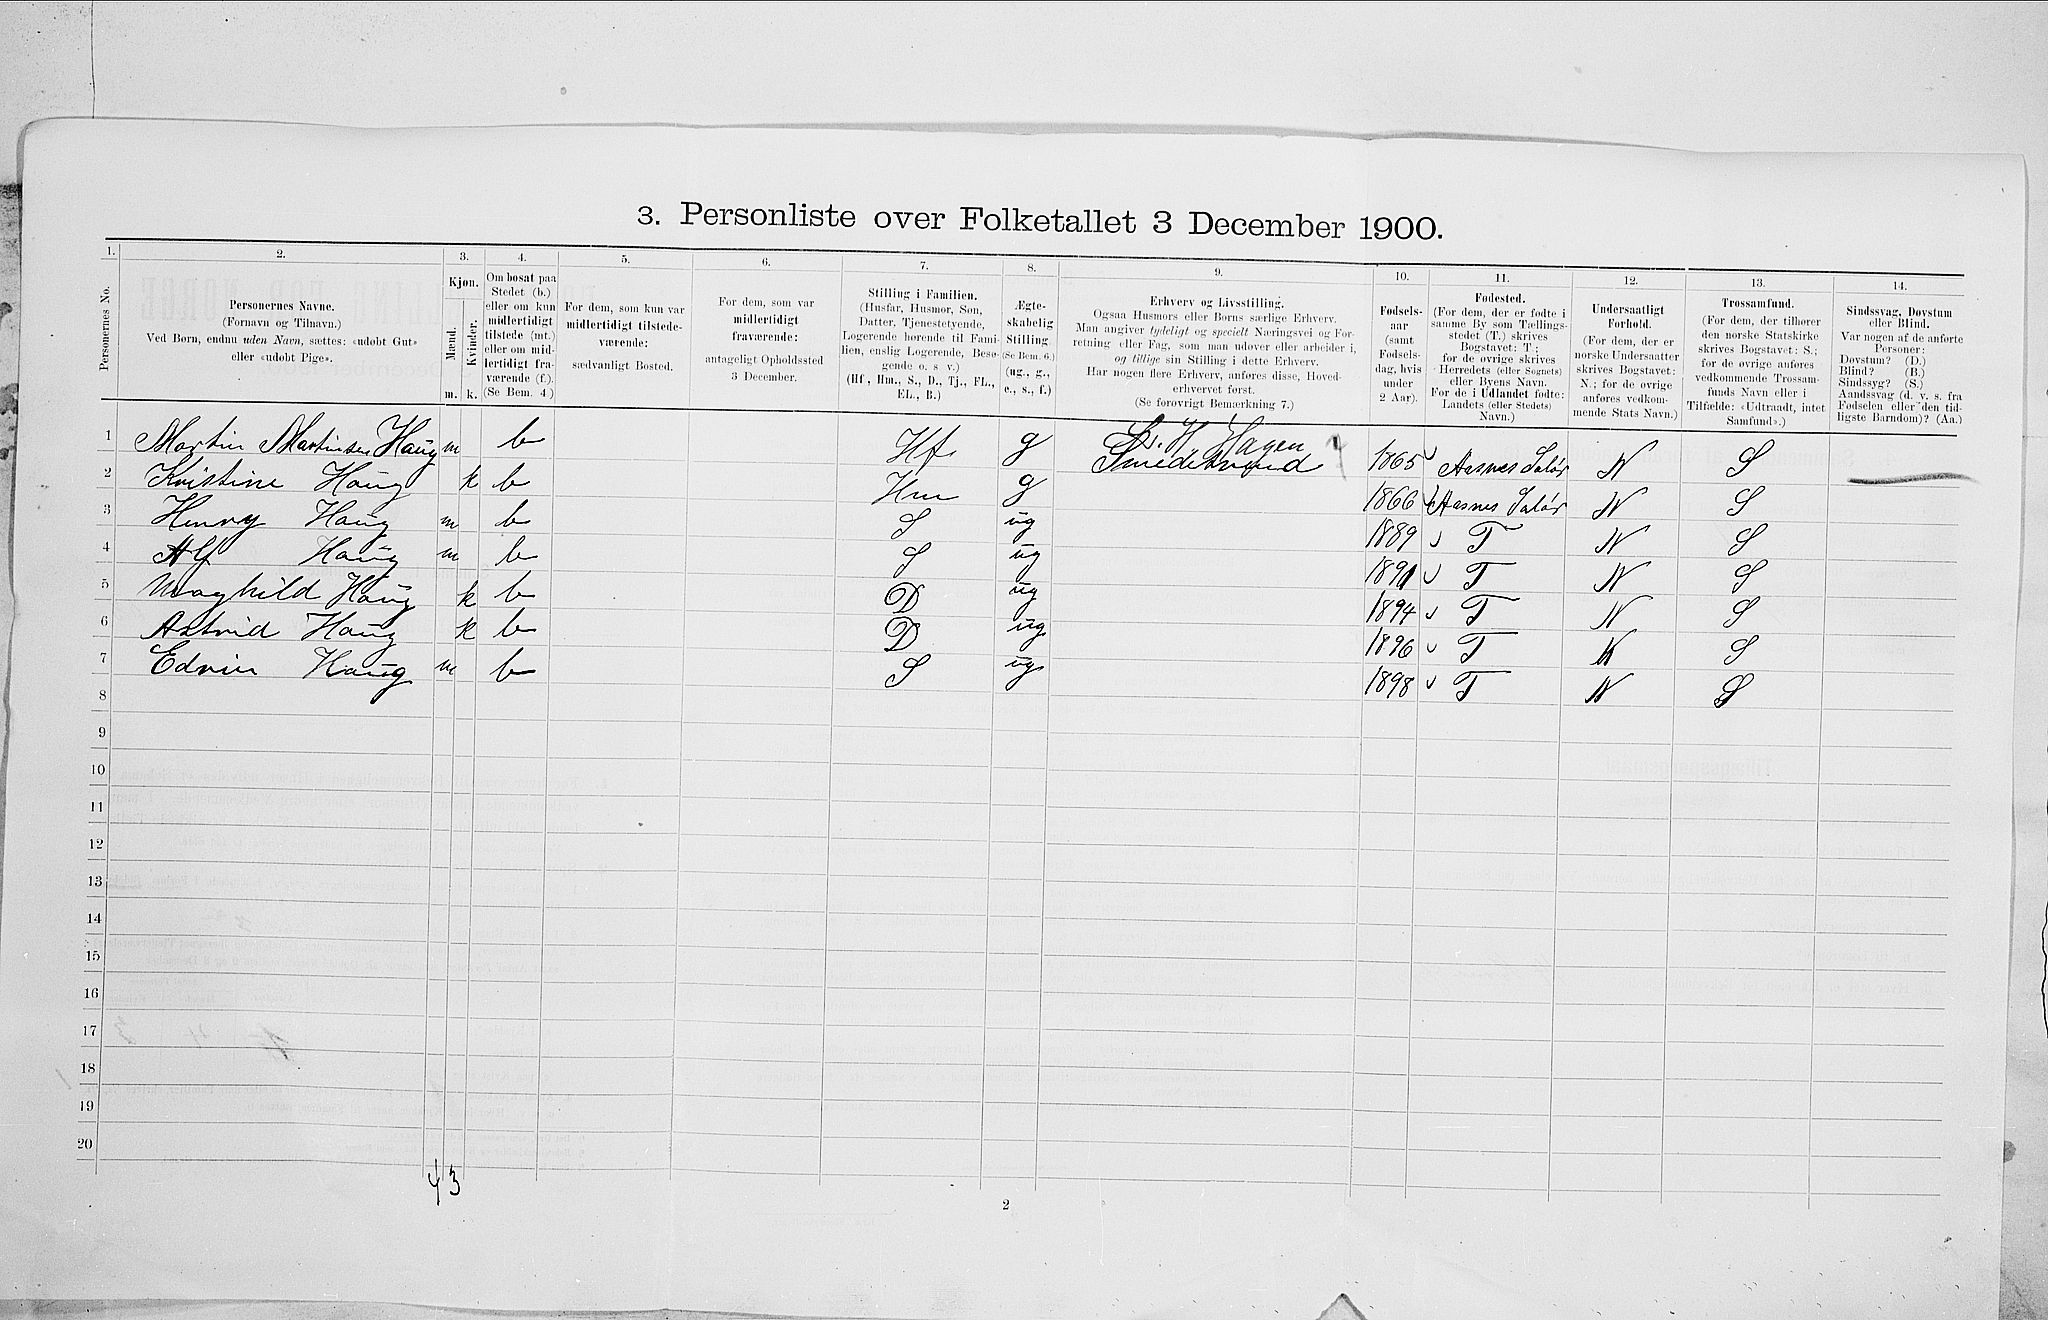 3. Personliste over Folketallet 3 December 1900.
1. 2. 3. 4. 5. 6. 7. 8. 9. 10. 11. 12. 13. 14.
Personernes No.
Personernes Navne.
(Fornavn og Tilnavn.)
Ved Børn, endnu uden Navn, sættes: «udøbt Gut»
eller «udøbt Pige».
Kjøn.
Mænd.
Kvinder.
m. k.
Om bosat paa
Stedet (b.)
eller om kun
midlertidigt
tilstede (mt.)
eller om mid-
lertidigt fra-
værende (f.).
(Se Bem. 4.)
For dem, som kun var
midlertidigt tilstede-
værende:
sædvanligt Bosted.
For dem, som var
midlertidigt
fraværende:
antageligt Opholdssted
3 December.
Stilling i Familien.
(Husfar, Husmor, Søn,
Datter, Tjenestetyende,
Logerende hørende til Fami-
lien, enslig Logerende, Besø-
gende o. s v.)
(Hf, Hm., S., D., Tj., FL.,
EL., B.)
Ægte-
skabelig
Stilling.
(Se Bem. 6.)
(ug., g.,
e., s., f.)
Erhverv og Livsstilling.
Ogsaa Husmors eller Børns særlige Erhverv.
Man angiver tydeligt og specielt Næringsvei og For-
retning eller Fag, som man udøver eller arbeider i,
og tillige sin Stilling i dette Erhverv.
Har nogen flere Erhverv, anføres disse, Hoved-
erhvervet først.
(Se forøvrigt Bemærkning 7.)
Fødsels-
aar
(samt
Fødsels-
dag, hvis
under
2 Aar).
Fødested.
(For dem, der er fødte i
samme By som Tællings-
stedet (T.) skrives
Bogstavet: T.;
for de øvrige skrives
Herredets (eller Sognets)
eller Byens Navn.
For de i Udlandet fødte:
Landets (eller Stedets)
Navn.)
Undersaatligt
Forhold.
(For dem, der er
norske Undersaatter
skrives Bogstavet:
N.; for de øvrige
anføres vedkom-
mende Stats Navn.)
Trossamfund.
(For dem, der tilhører
den norske Statskirke
skrives Bogstavet: S.;
for de øvrige anføres
vedkommende Trossam-
funds Navn eller i
Tilfælde: «Udtraadt, intet
Samfund».)
Sindssvag, Døvstum
eller Blind.
Var nogen af de anførte
Personer:
Døvstum? (D.)
Blind? (B.)
Sindssyg? (S.)
Aandssvag (d. v. s. fra
Fødselen eller den tid-
ligste Barndom)? (Aa.)
1 Martin Martinsen Haug m b Hf g Smedesvend 1865 Aasnes Solør N S
H. Hagen
2 Kristine Haug k b Hm g 1866 Aasnes Solør N S
3 Henry Haug m b S ug 1889 T N S
4 Alf Haug m b S ug 1891 T N S
5 Maghild Haug k b D ug 1894 T N S
6 Astrid Haug k b D ug 1896 T N S
7 Edvin Haug m b S ug 1898 T N S
8
9
10
11
12
13
14
15
16
17
18
19
20
4 3
2